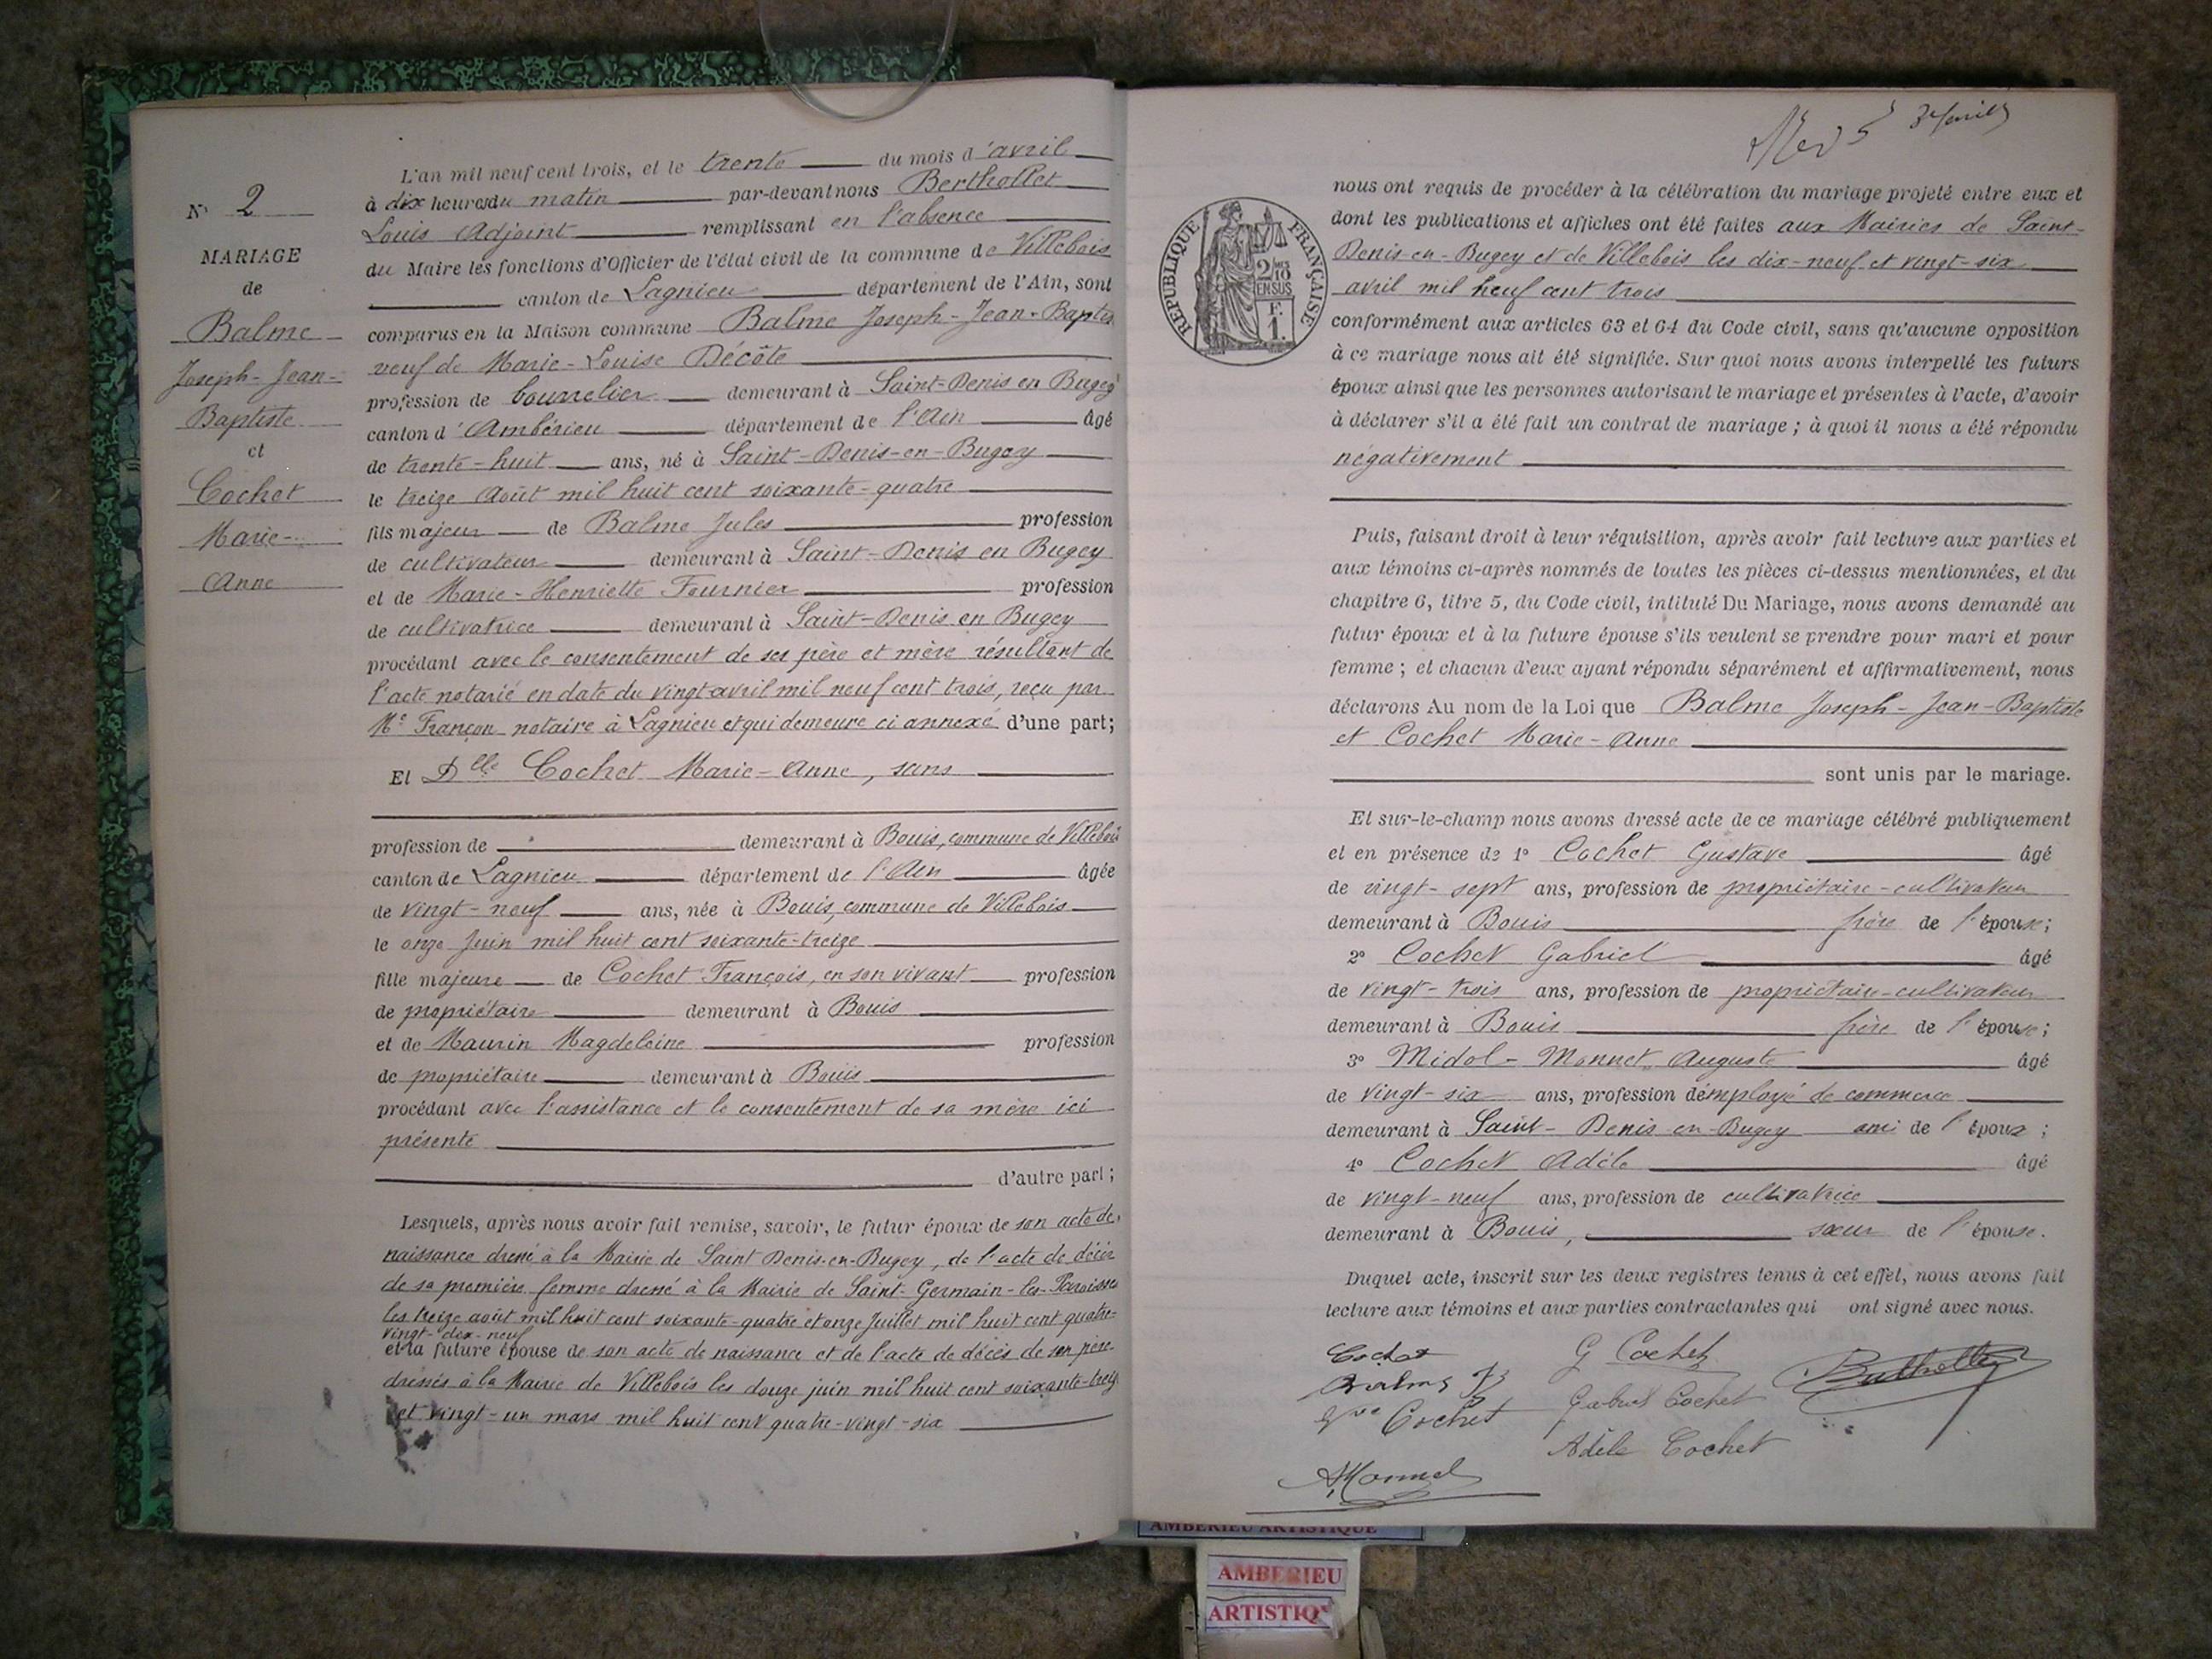 N° 2
MARIAGE
de
Balme
Joseph-Jean-
Baptiste
et
Cochet
Marie-
Anne
L'an mil neuf cent trois, et le trente du mois d'avril
à dix heures du matin par-devant nous Berthollet
Louis Adjoint remplissant en l'absence
du Maire les fonctions d'Officier de l'état civil de la commune de Villebois
canton de Lagnieu département de l'Ain, sont
comparus en la Maison commune Balme Joseph-Jean-Baptiste
veuf de Marie-Louise Décôte
profession de bourrelier demeurant à Saint-Denis en Bugey
canton d'Ambérieu département de l'Ain âgé
de trente-huit ans, né à Saint-Denis-en-Bugey
le treize Août mil huit cent soixante-quatre
fils majeur de Balme Jules profession
de cultivateur demeurant à Saint-Denis en Bugey
et de Marie-Henriette Fournier profession
de cultivatrice demeurant à Saint-Denis en Bugey
procédant avec le consentement de ses père et mère résultant de
l'acte notarié en date du vingt avril mil neuf cent trois, reçu par
Me Françon notaire à Lagnieu et qui demeure ci annexé d'une part;
Et Dlle Cochet Marie-Anne, sans
profession de demeurant à Bouis, commune de Villebois
canton de Lagnieu département de l'Ain âgée
de vingt-neuf ans, née à Bouis, commune de Villebois
le onze Juin mil huit cent soixante-treize
fille majeure de Cochet François, en son vivant profession
de propriétaire demeurant à Bouis
et de Maurin Magdeleine profession
de propriétaire demeurant à Bouis
procédant avec l'assistance et le consentement de sa mère ici
présente
d'autre part;
Lesquels, après nous avoir fait remise, savoir, le futur époux de son acte de
naissance dressé à la Mairie de Saint Denis-en-Bugey, de l'acte de décès
de sa première femme dressé à la Mairie de Saint-Germain-les-Paroisses
les treize août mil huit cent soixante-quatre et onze Juillet mil huit cent quatre-
vingt-dix-neuf
et la future épouse de son acte de naissance et de l'acte de décès de son père
dressés à la Mairie de Villebois les douze juin mil huit cent soixante-treize
et vingt-un mars mil huit cent quatre-vingt-six
REPUBLIQUE FRANÇAISE
2/10
EN SUS
F.
1.
nous ont requis de procéder à la célébration du mariage projeté entre eux et
dont les publications et affiches ont été faites aux Mairies de Saint-
Denis-en-Bugey et de Villebois les dix-neuf et vingt-six
avril mil neuf cent trois
conformément aux articles 63 et 64 du Code civil, sans qu'aucune opposition
à ce mariage nous ait été signifiée. Sur quoi nous avons interpellé les futurs
époux ainsi que les personnes autorisant le mariage et présentes à l'acte, d'avoir
à déclarer s'il a été fait un contrat de mariage; à quoi il nous a été répondu
négativement
Puis, faisant droit à leur réquisition, après avoir fait lecture aux parties et
aux témoins ci-après nommés de toutes les pièces ci-dessus mentionnées, et du
chapitre 6, titre 5, du Code civil, intitulé Du Mariage, nous avons demandé au
futur époux et à la future épouse s'ils veulent se prendre pour mari et pour
femme; et chacun d'eux ayant répondu séparément et affirmativement, nous
déclarons Au nom de la Loi que Balme Joseph-Jean-Baptiste
et Cochet Marie-Anne
sont unis par le mariage.
Et sur-le-champ nous avons dressé acte de ce mariage célébré publiquement
et en présence de 1° Cochet Gustave âgé
de vingt-sept ans, profession de propriétaire-cultivateur
demeurant à Bouis frère de l'épouse;
2° Cochet Gabriel âgé
de vingt-trois ans, profession de propriétaire-cultivateur
demeurant à Bouis frère de l'épouse;
3° Midol-Monnet Auguste âgé
de vingt-six ans, profession d'employé de commerce
demeurant à Saint-Denis-en-Bugey ami de l'époux;
4° Cochet Adèle âgé
de vingt-neuf ans, profession de cultivatrice
demeurant à Bouis, sœur de l'épouse.
Duquel acte, inscrit sur les deux registres tenus à cet effet, nous avons fait
lecture aux témoins et aux parties contractantes qui ont signé avec nous.
Cochet G Cochet Berthollet
Balme JJ
Vve Cochet Gabriel Cochet
Adèle Cochet
AMonnet
AMBERIEU ARTISTIQUE
AMBERIEU
ARTISTIQ